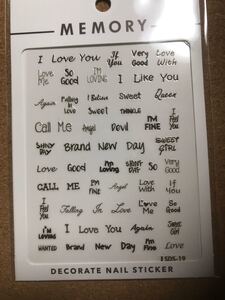 MEMORY
I Love You If You Very Good Love With
Love Me So Good I'M LOVING I Like You
Again Falling in LOVE I Believe Sweet Queen
SWEET THINGLE
Call Me Angel Devil I'M FINE I Feel You
SUNNY DAY Brand New Day SWEET GIRL
Love Good I'm Loving SO Very Good
CALL ME I'M FINE Angel Love With If You
I Feel You Falling In Love Love Me So Good
I'm Loving I Love You Again SWEET GIRL
WANTED Brand New Day I'm Fine Love
LSDS-19
DECORATE NAIL STICKER